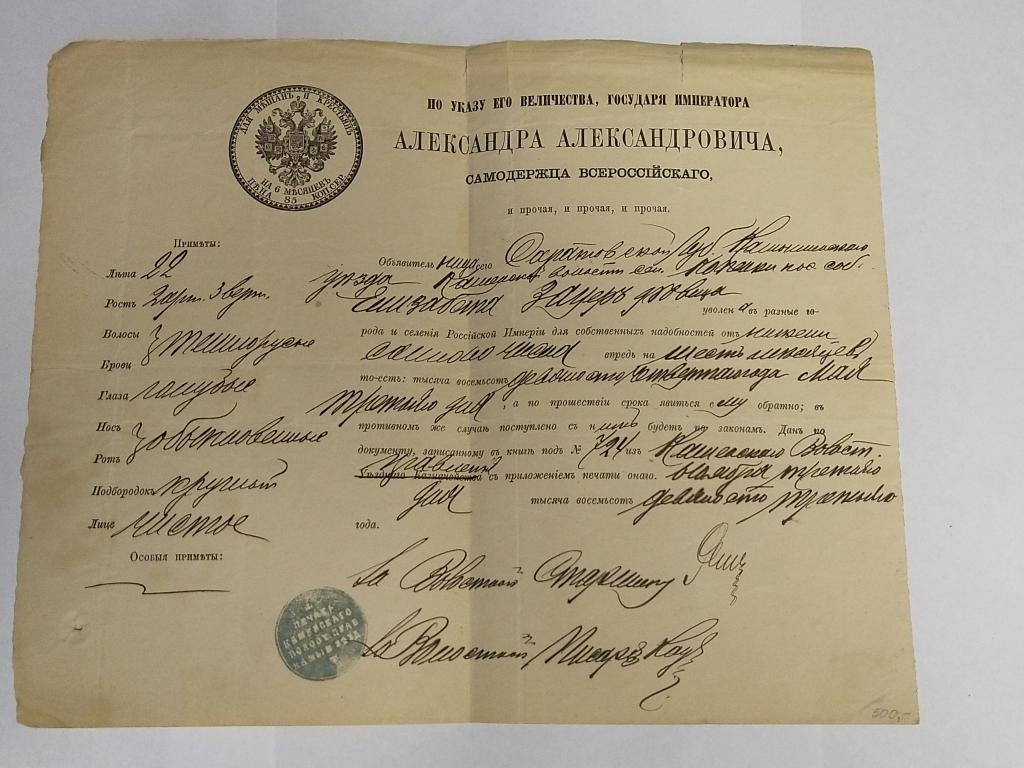 ДЛЯ МѢЩАНЪ И КРЕСТЬЯНЪ
НА 6 МѢСЯЦЕВЪ
ЦѢНА 85 КОП. СЕР.
ПО УКАЗУ ЕГО ВЕЛИЧЕСТВА, ГОСУДАРЯ ИМПЕРАТОРА
АЛЕКСАНДРА АЛЕКСАНДРОВИЧА,
САМОДЕРЖЦА ВСЕРОССІЙСКАГО,
и прочая, и прочая, и прочая.
Примѣты:
Лѣта 22
Ростъ 2 арш. 3 верш.
Волосы
Бровц темнорусые
Глаза голубые
Носъ
Ротъ обыкновенные
Подбородокъ круглый
Лице чистое
Особыя примѣты:
Объявительница сего Саратовской Губ. Камышинскаго
уѣзда Каменской волости
Елизабета уволена въ разные го-
рода и селенія Россійской Имперіи для собственныхъ надобностей отъ нижепи
саннаго числа впредь на шесть мѣсяцевъ
то-есть: тысяча восемьсотъ девяносто четвертаго года Мая
третьяго дня, а по прошествіи срока явиться ему обратно; въ
противномъ же случаѣ поступлено съ нимъ будетъ по законамъ. Данъ по
документу, записанному въ книгѣ подъ № 724 изъ Каменскаго Волост.
Правленія
Уѣзднаго Казначейства съ приложеніемъ печати онаго. Ноября третьяго
дня тысяча восемьсотъ девяносто третьяго
года.
За Волостной Старшину
За Волостной Писарь
ПЕЧАТЬ
КАМЕНСКАГО
ВОЛОСТ. ПРАВ
500,-